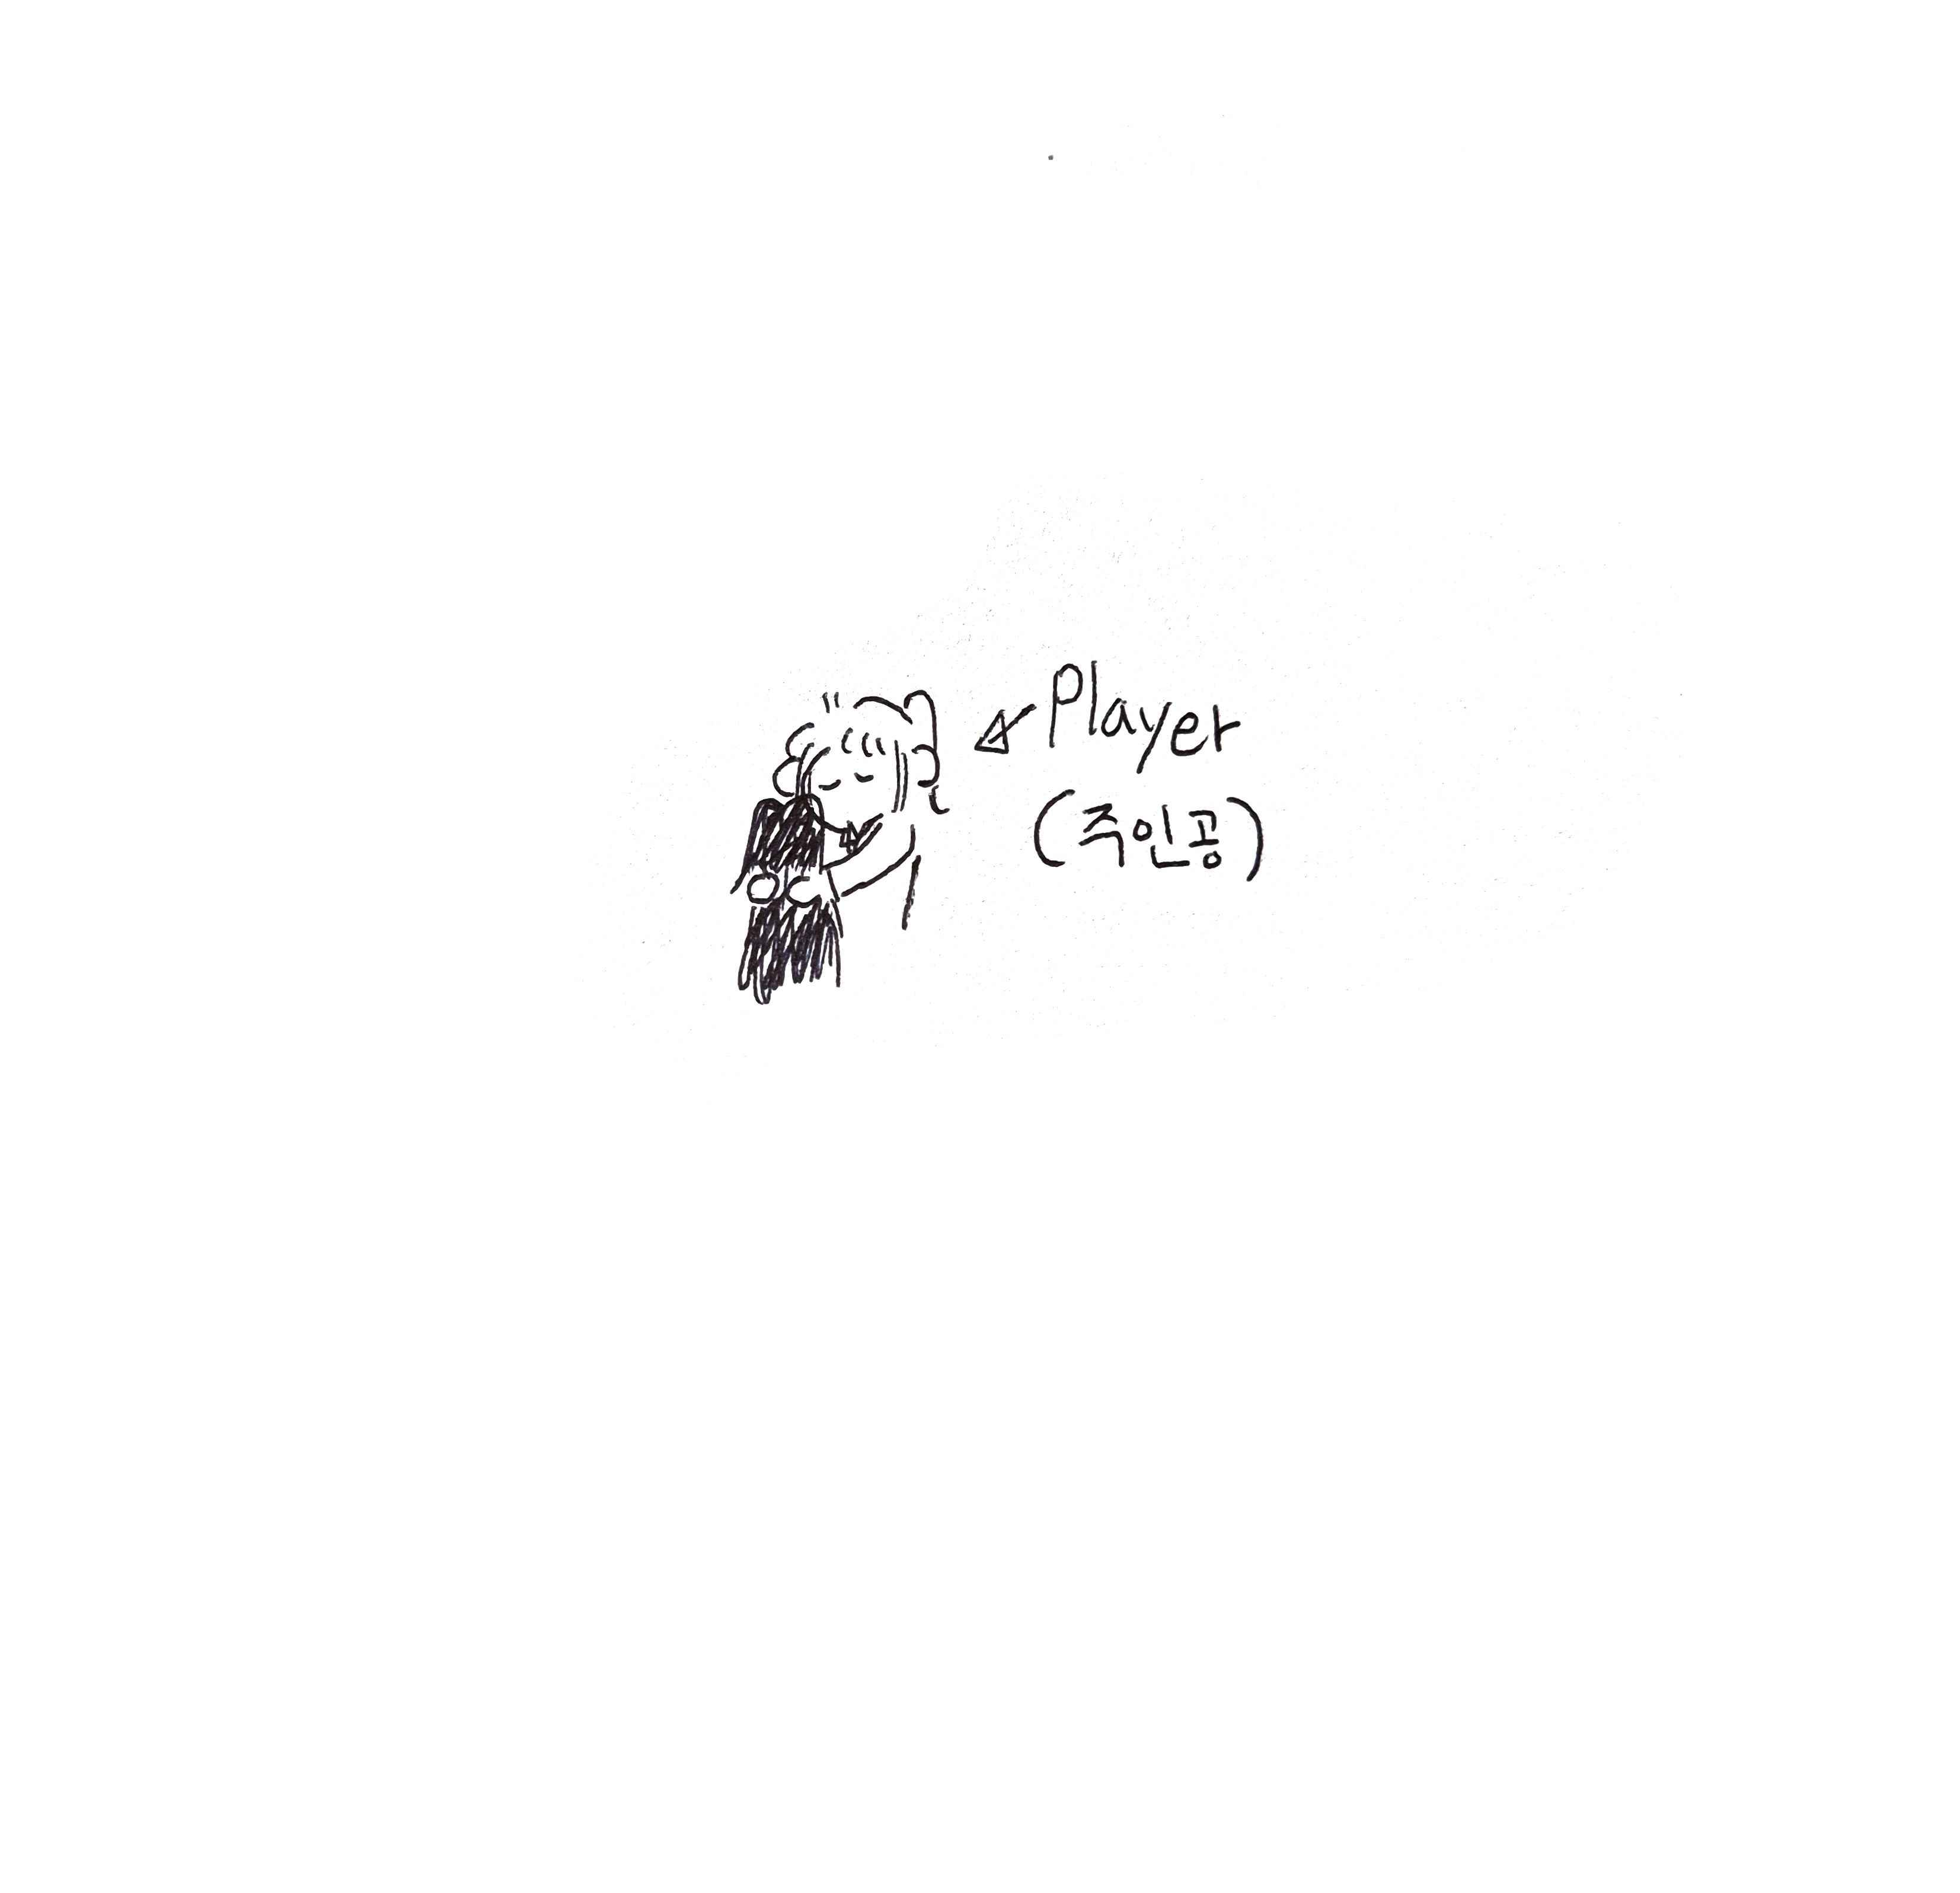 Player
(주인공)